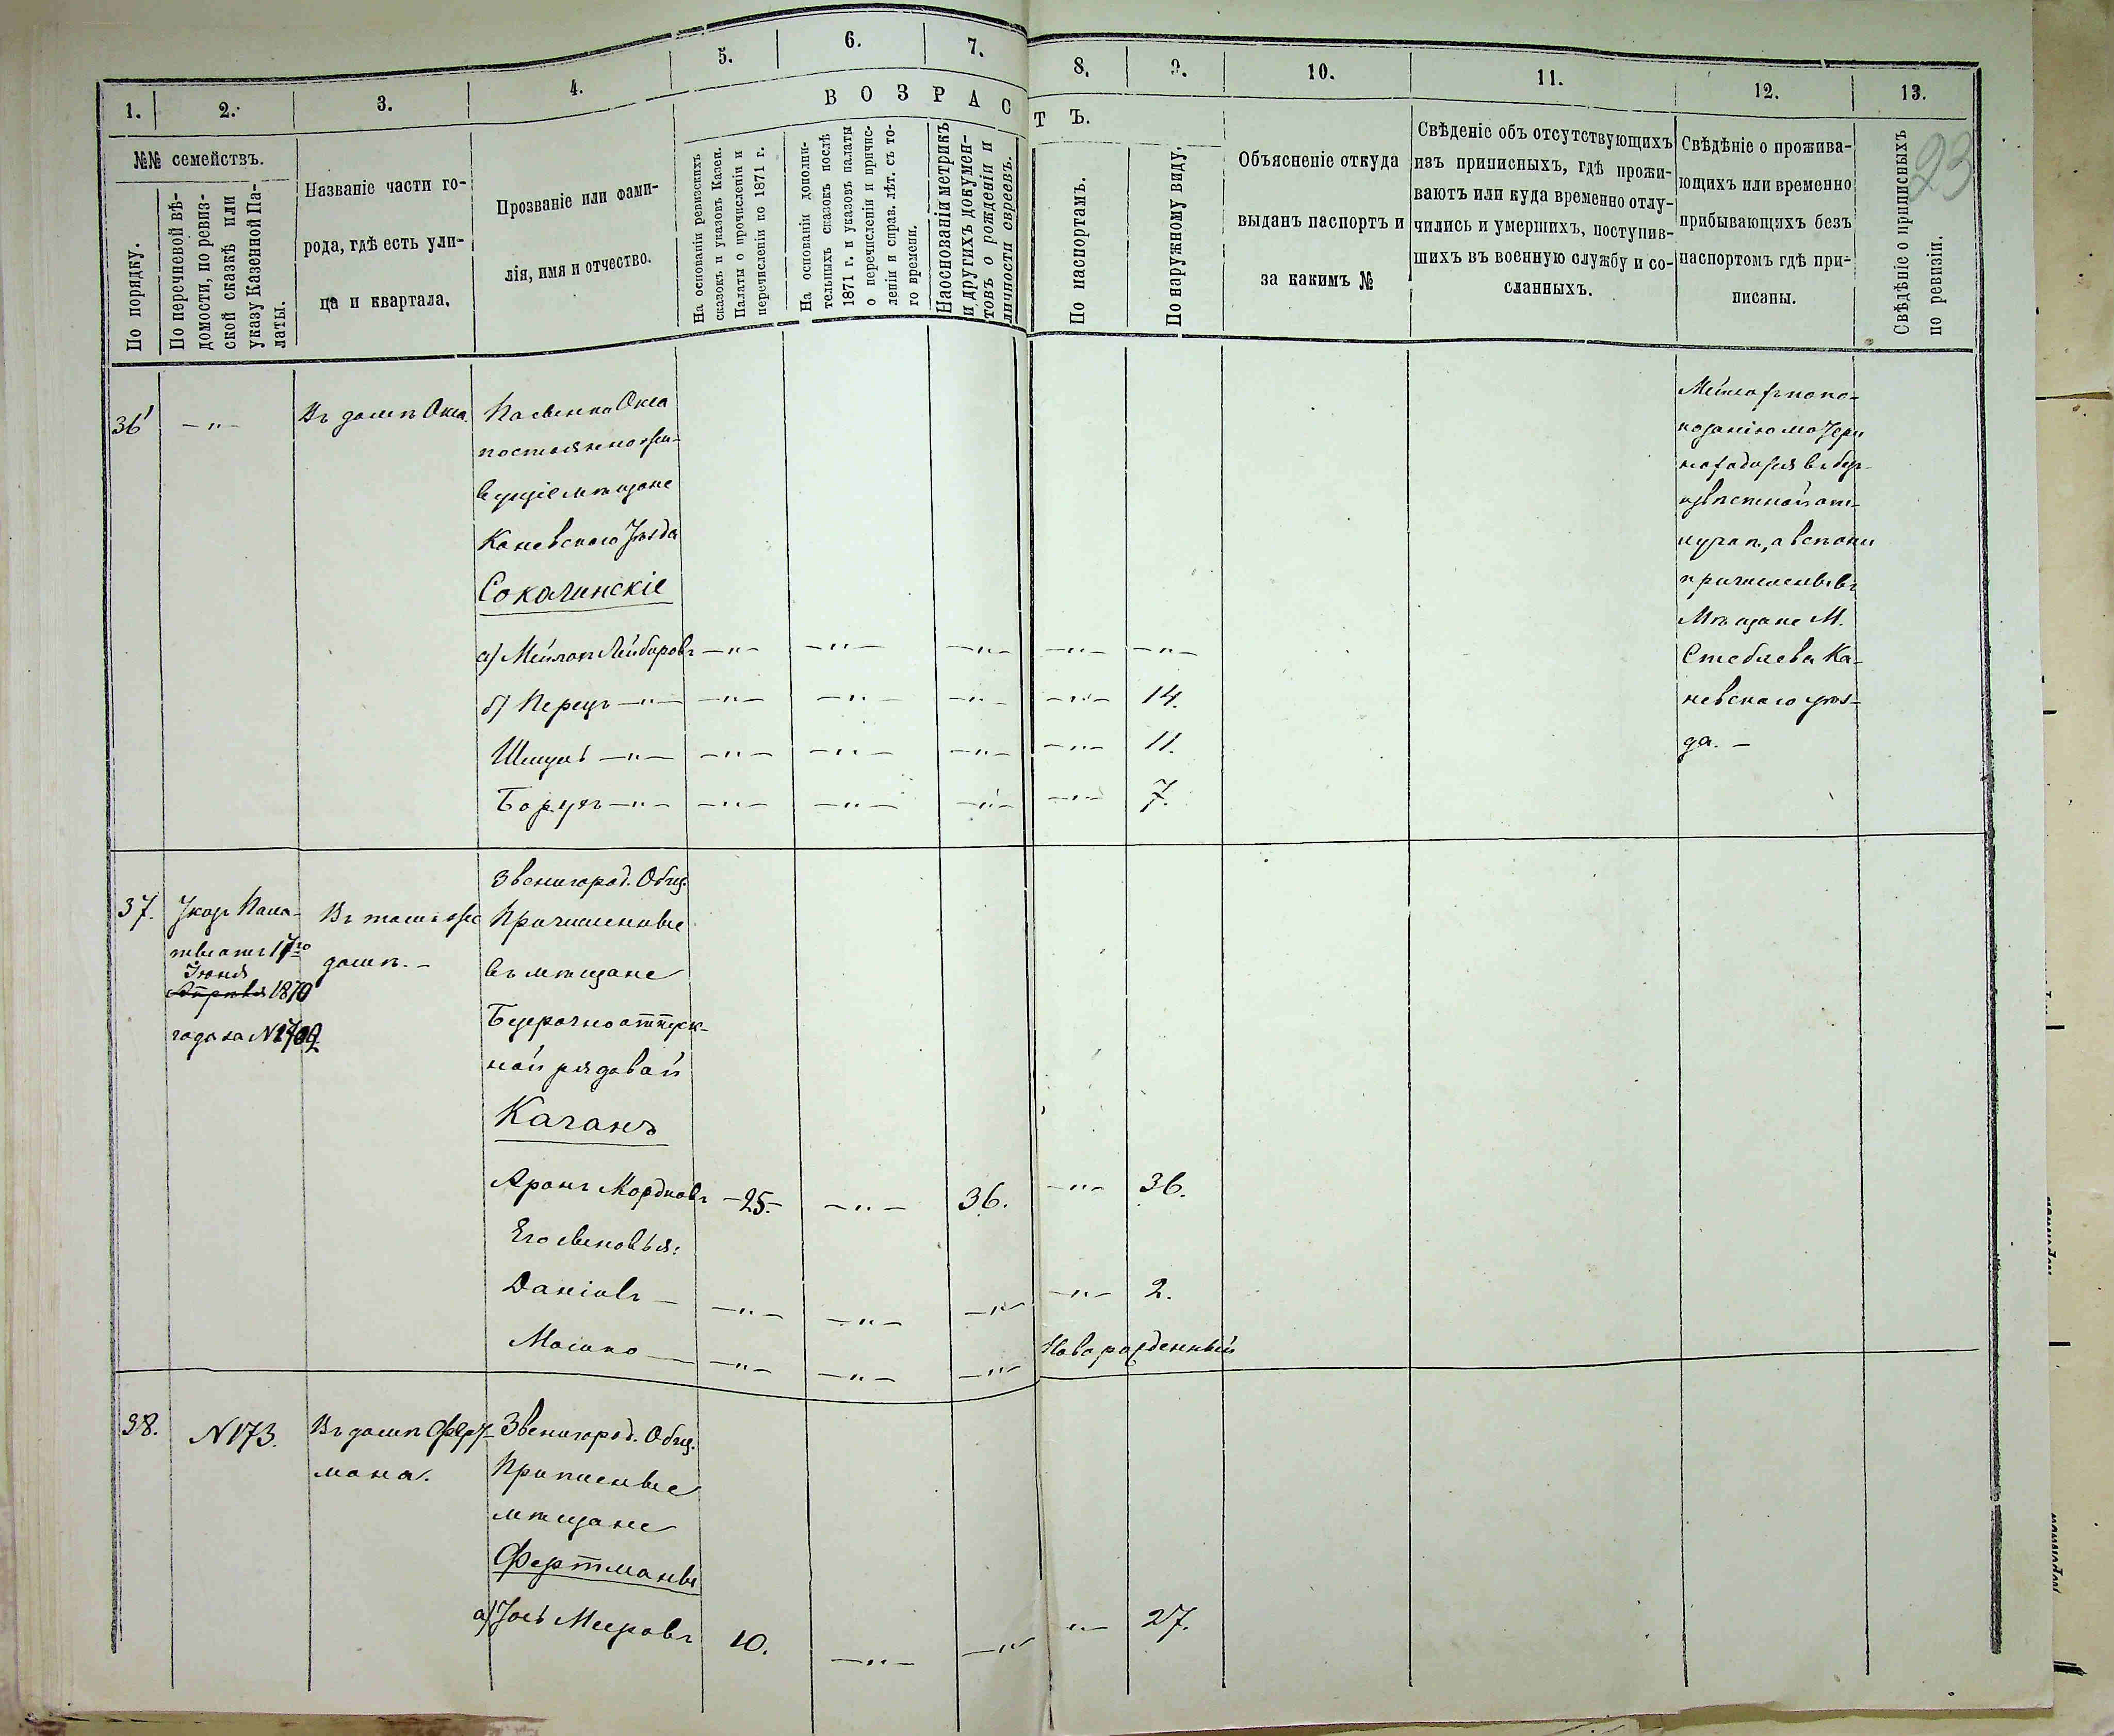 1.
2.
3.
4.
5.
6.
7.
8.
9.
10.
11.
12.
13.
23
ВОЗРАСТЪ.
№№ семействъ.
По порядку.
По перечневой вѣ-
домости, по ревиз-
ской сказкѣ или
указу Казенной Па-
латы.
Названіе части го-
рода, гдѣ есть ули-
ца и квартала.
Прозваніе или фами-
лія, имя и отчество.
На основаніи ревизскихъ
сказокъ и указовъ Казен.
Палаты о причисленіи и
перечисленіи по 1871 г.
На основаніи дополни-
тельныхъ сказокъ послѣ
1871 г. и указовъ палаты
о перечисленіи и причис-
леніи и справ. лѣт. съ то-
го времени.
На основаніи метрикъ
и другихъ докумен-
товъ о рожденіи и
личности евреевъ.
По паспортамъ.
По наружному виду.
Объясненіе откуда
выданъ паспортъ и
за какимъ №
Свѣденіе объ отсутствующихъ
изъ приписныхъ, гдѣ прожи-
ваютъ или куда временно отлу-
чились и умершихъ, поступив-
шихъ въ военную службу и со-
сланныхъ.
Свѣдѣніе о прожива-
ющихъ или временно
прибывающихъ безъ
паспортомъ гдѣ при-
писаны.
Свѣдѣніе о приписныхъ
по ревизіи.
36
— " —
Въ домѣ Окса
Окса
постоянно жи-
вущіе мѣщане
Каневскаго Уѣзда
Соколинскіе
а) Мейлохъ Лейбировъ — " — — " — — " — — " — — " —
б) Перецъ — " — — " — — " — — " — — " — 14.
Шмуль — " — — " — — " — — " — — " — 11.
Борухъ — " — — " — — " — — " — — " — 7.
Мейлахъ по по-
казанію матери
находится въ без-
извѣстной от-
лучкѣ, а всѣ они
причислены въ
Мѣщане М.
Стеблева Ка-
невскаго уѣз-
да. —
37.
Указъ Пала-
ты отъ 17го
Іюня
Апрѣля 1870
года за №1709
Въ томъ же
домѣ. —
Звенигород. Общ.
Причисленные
въ мѣщане
Безсрочноотпуск-
ной рядовой
Каганъ
Аронъ Мордковъ — 25. — — " — 36. — " — 36.
Его сыновья:
Даніолъ — — " — — " — — " — — " — 2.
Мошко — — " — — " — — " — Новорожденный
38.
№ 173.
Въ домѣ Ферт-
мана.
Звенигород. Общ.
Приписные
мѣщане
Фертманы
а) Іось Мееровъ 10. — " — — " — — " — 27.